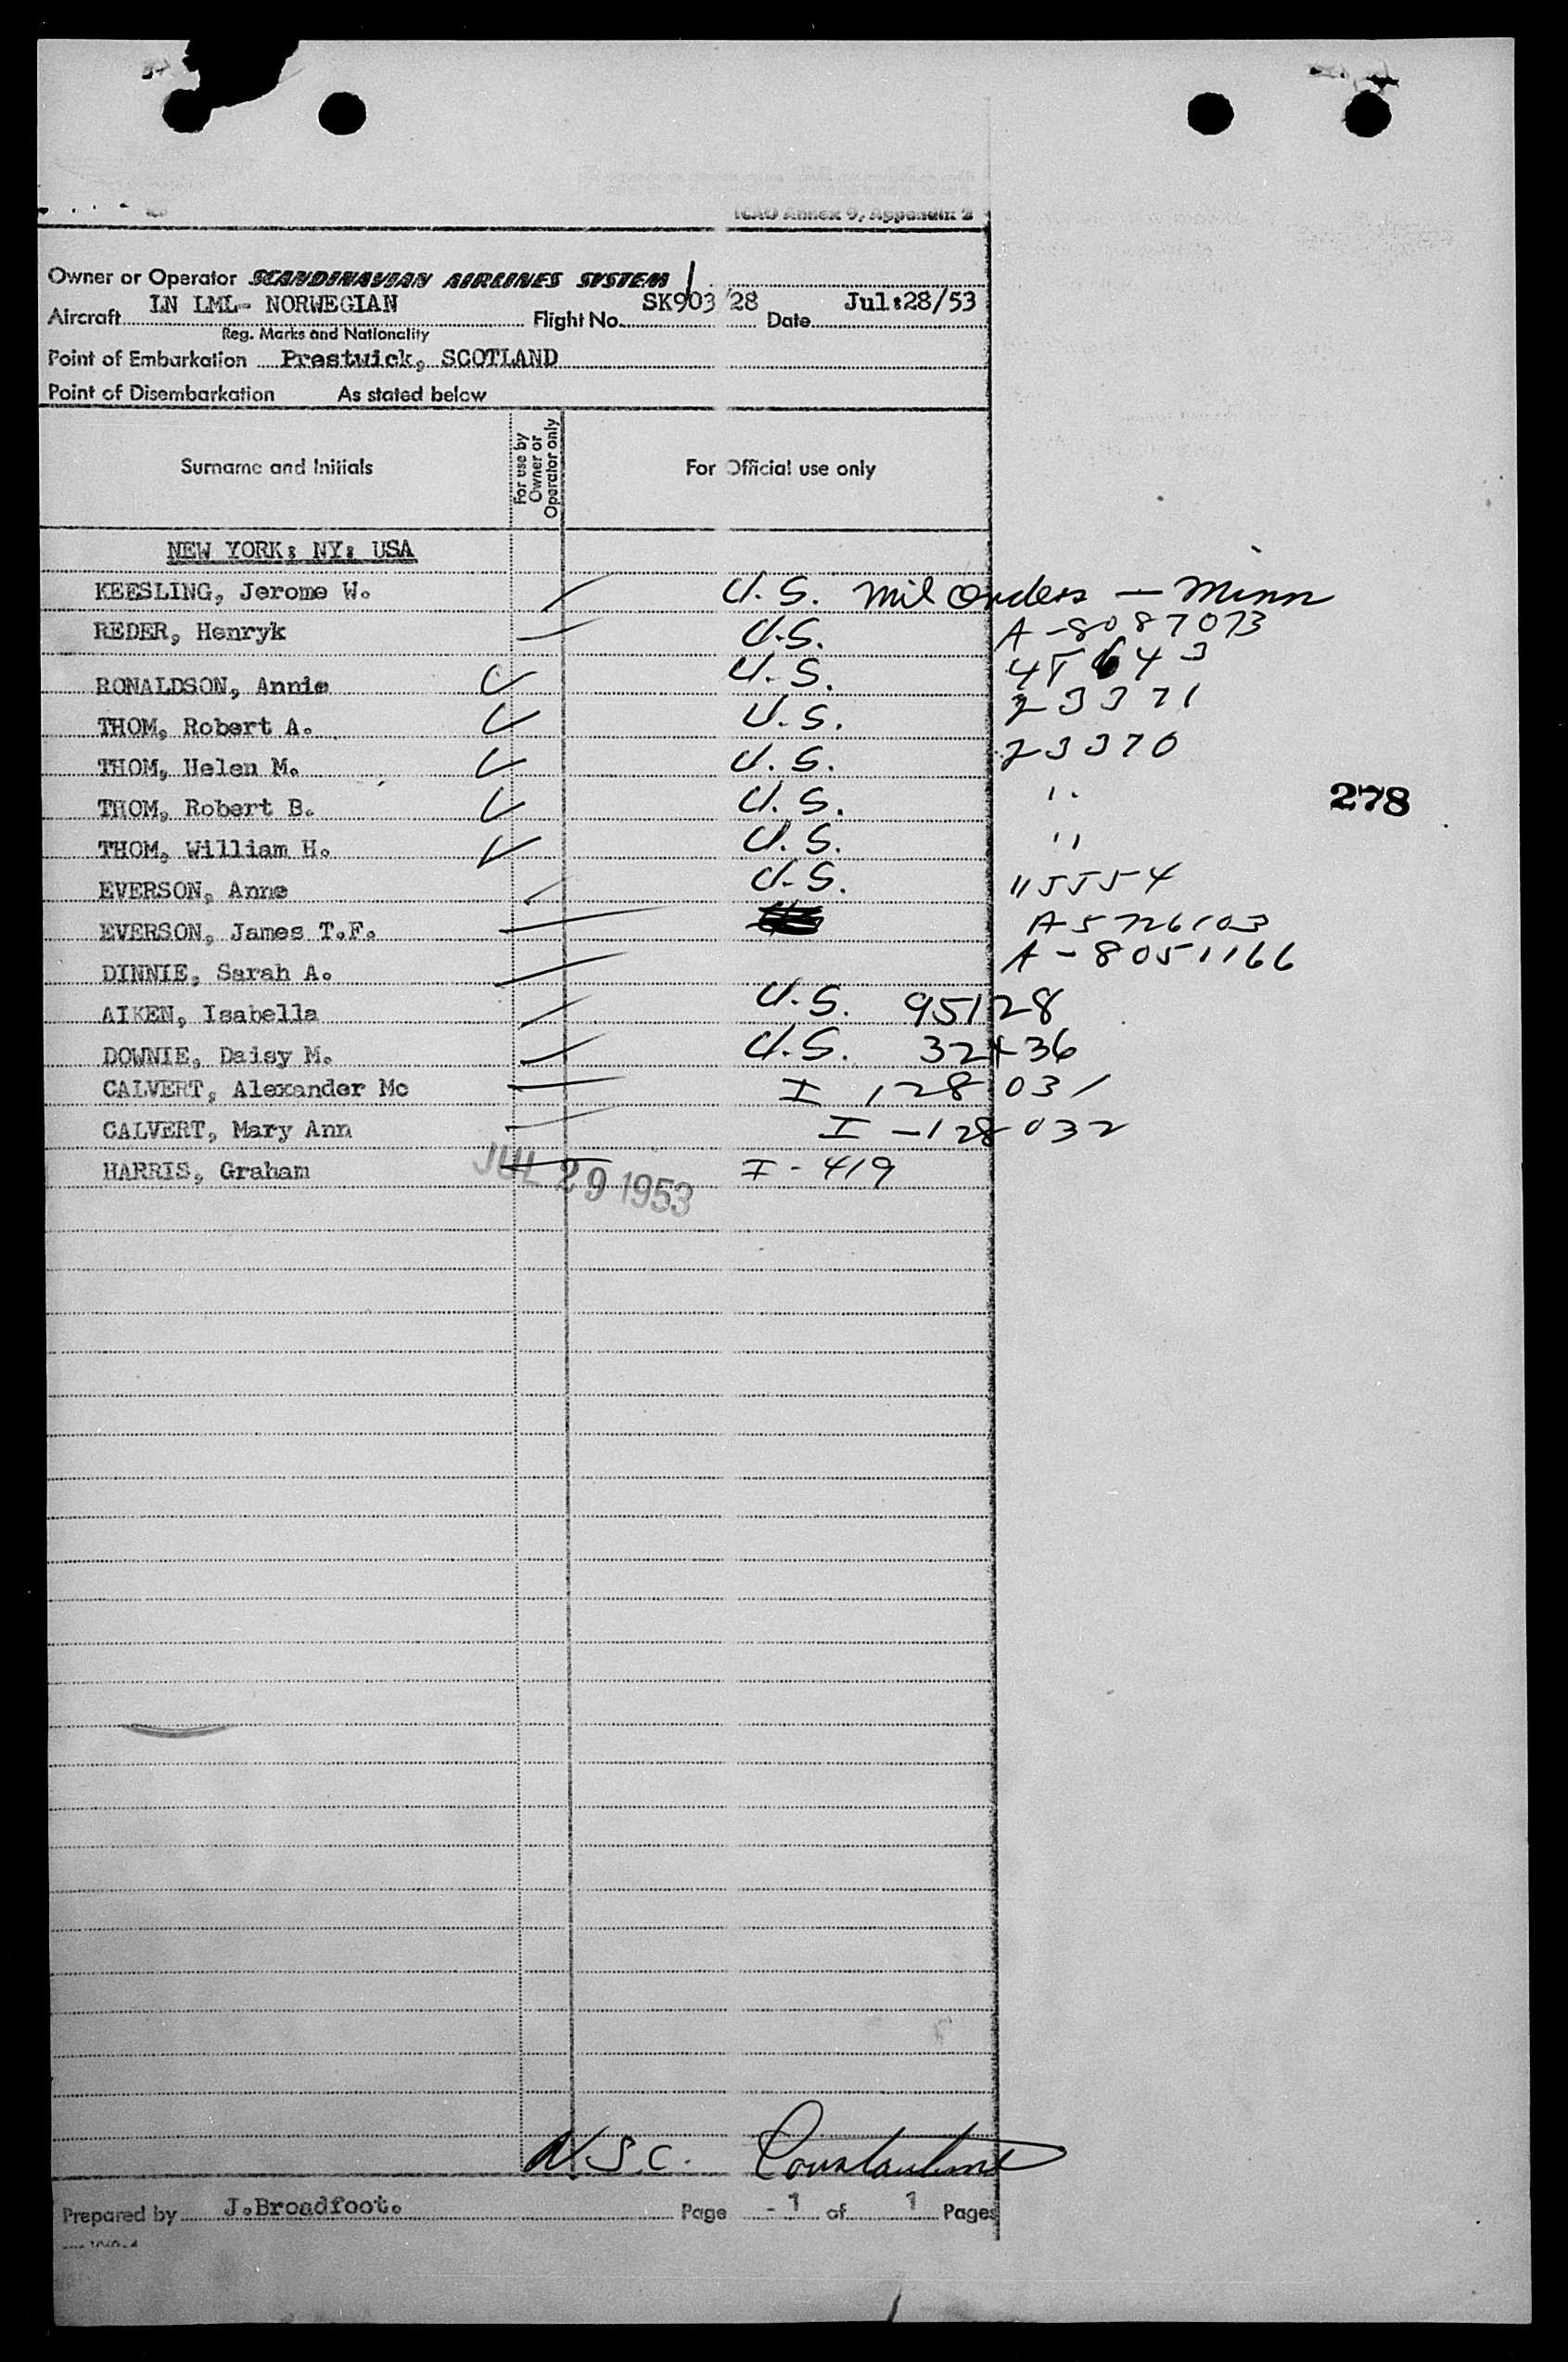 ICAO Annex 9, Appendix 2
Owner or Operator SCANDINAVIAN AIRLINES SYSTEM
Aircraft LN LML- NORWEGIAN Flight No. SK903/28 Date Jul:28/53
Reg. Marks and Nationality
Point of Embarkation Prestwick, SCOTLAND
Point of Disembarkation As stated below
Surname and Initials For use by Owner or Operator only For Official use only
NEW YORK: NY: USA
KEESLING, Jerome W. U.S. Mil Orders — Minn
REDER, Henryk U.S. A-8087073
RONALDSON, Annie U.S. 45643
THOM, Robert A. U.S. 23371
THOM, Helen M. U.S. 23370
THOM, Robert B. U.S. "
278
THOM, William H. U.S. "
EVERSON, Anne U.S. 115554
EVERSON, James T.F. A5726103
DINNIE, Sarah A. A-8051166
AIKEN, Isabella U.S. 95128
DOWNIE, Daisy M. U.S. 32436
CALVERT, Alexander Mc I 128031
CALVERT, Mary Ann I-128032
HARRIS, Graham I-419
JUL 29 1953
N.S.C. Constantine
Prepared by J.Broadfoot. Page - 1 of 1 Pages